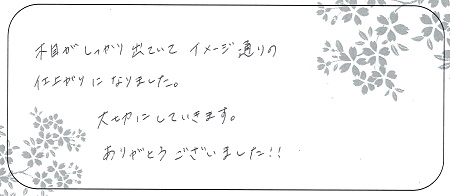 木目がしっかり出ていて イメージ通りの
仕上がりに なりました。
大切にしていきます。
ありがとうございました!!